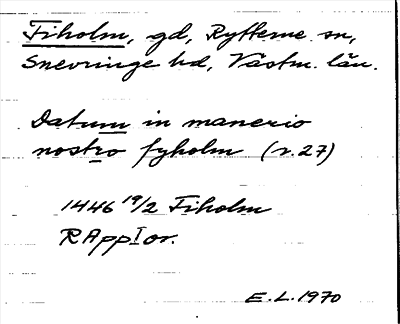 Fiholm, gd, Rytterne sn,
Snevringe hd, Västm. län.
Datum in manerio
nostro fyholm (r. 27)
1446 19/2 Fiholm
RAppI or.
E.L. 1970